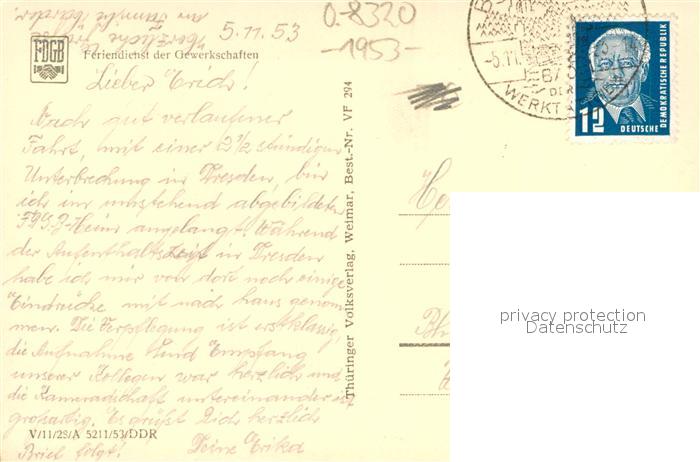 5.11.53
0-8320
-1953-
FDGB
Feriendienst der Gewerkschaften
Lieber Erich!
Nach gut verlaufener
Fahrt, mit einer 2 1/2 stündigen
Unterbrechung in Dresden, bin
ich im umstehend abgebildeten
angelangt. Während
der Aufenthaltszeit in Dresden
habe ich mir von dort noch einige
Eindrücke mit nach haus genom
men. Die Verpflegung ist erstklassig,
die Aufnahme und Empfang
unserer Kollegen war herzlich und
die Kameradschaft untereinander ist
großartig. Es grüßt Dich herzlich
V/11/28/A 5211/53/DDR
Brief folgt! Deine Erika
Thüringer Volksverlag, Weimar, Best.-Nr. VF 294
-5.11.
BAD
DER
WERKT
12
DEUTSCHE
DEMOKRATISCHE REPUBLIK
He
privacy protection
Datenschutz